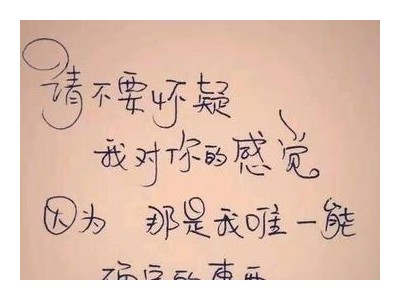 请不要怀疑
我对你的感觉
因为 那是我唯一能